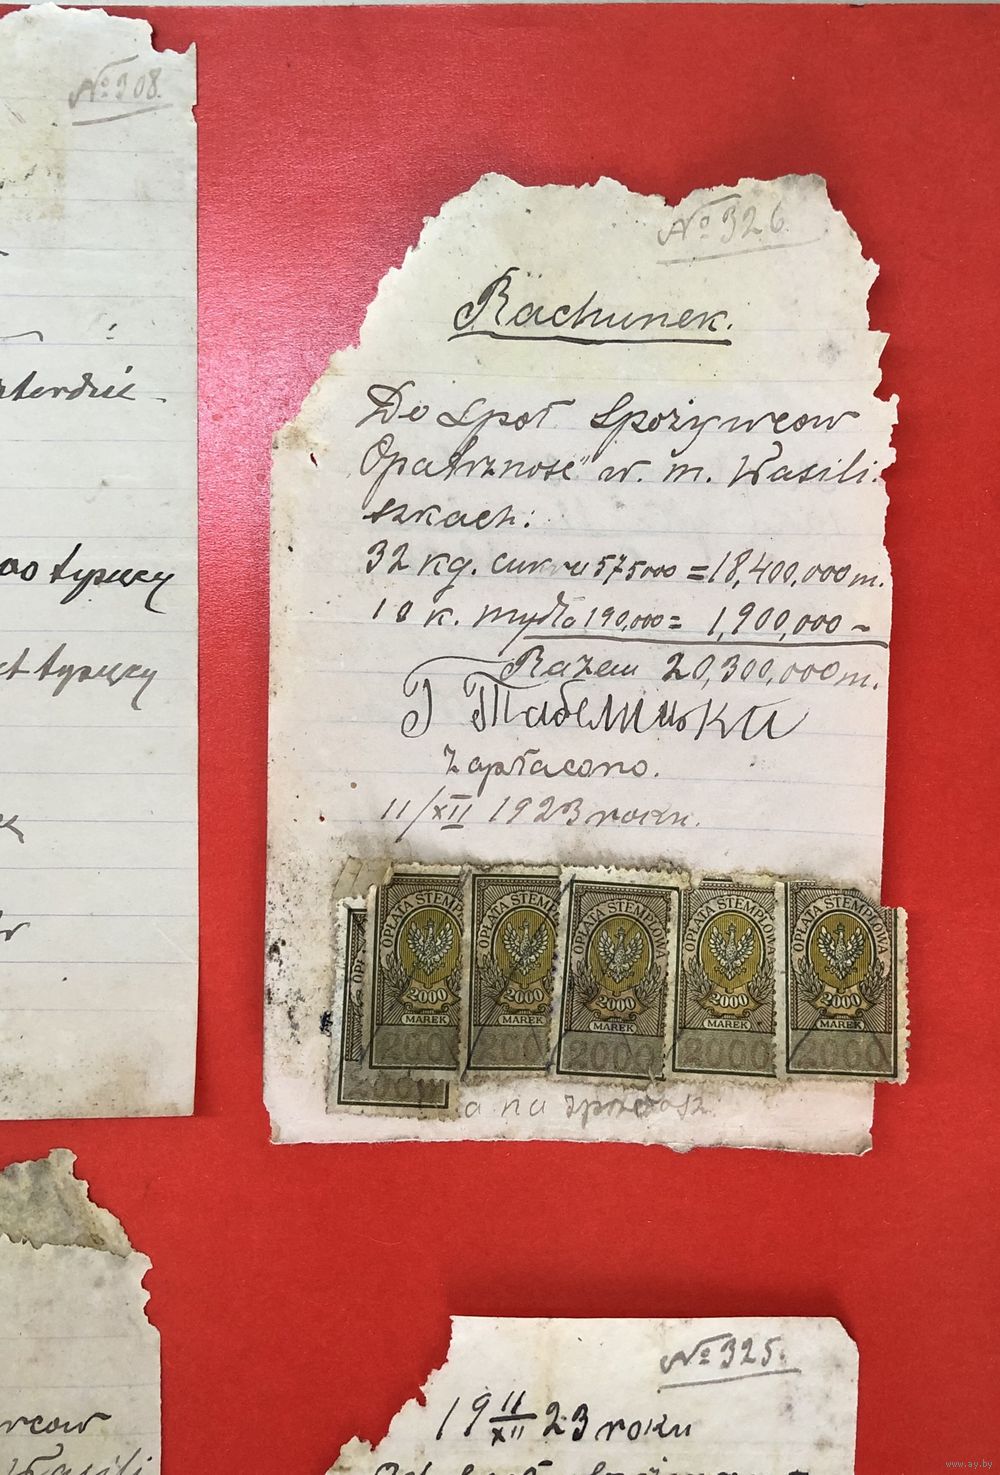 № 308.
№ 326.
Rachunek.
Do Społ Spożywcow
Opatrznosć" w. m. Wasili-
szkach:
32 kg. cukru 575000 = 18,400,000 m.
10 k. mydła 190,000 = 1,900,000 -
Razem 20,300,000 m.
Zapłacono.
11/XII 1923 roku.
OPŁATA STEMPLOWA
2000
MAREK
2000
OPŁATA STEMPLOWA
2000
MAREK
2000
OPŁATA STEMPLOWA
2000
MAREK
2000
OPŁATA STEMPLOWA
2000
MAREK
2000
OPŁATA STEMPLOWA
2000
MAREK
2000
a na
№ 325.
19 11/XII 23 roku
www.ay.by